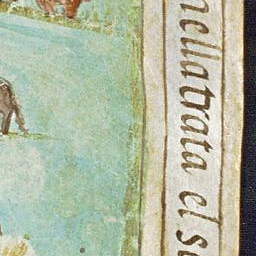 nella trata el su